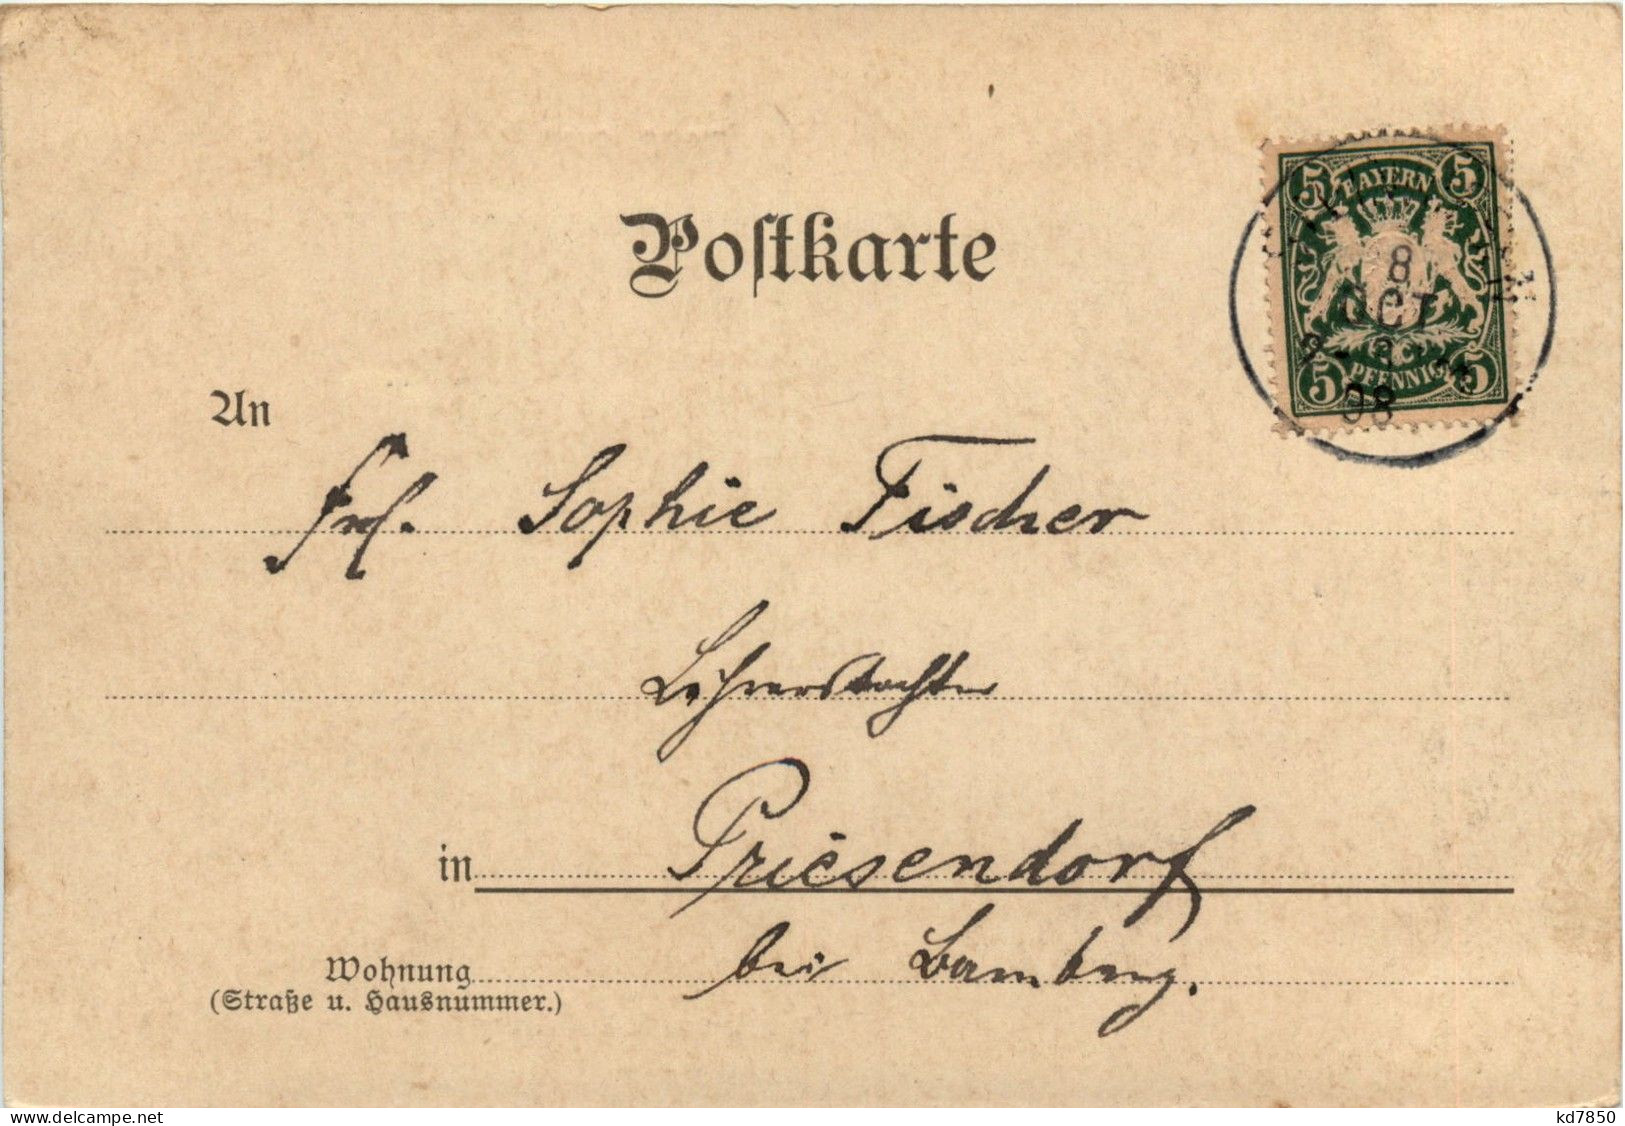 Postkarte
5 5
BAYERN
8
OCT
98
PFENNIG
5 5
An
Frl. Sophie Fischer
Lehrerstochter
in Priesendorf
Wohnung bei Bamberg.
(Straße u. Hausnummer.)
www.delcampe.net
kd7850